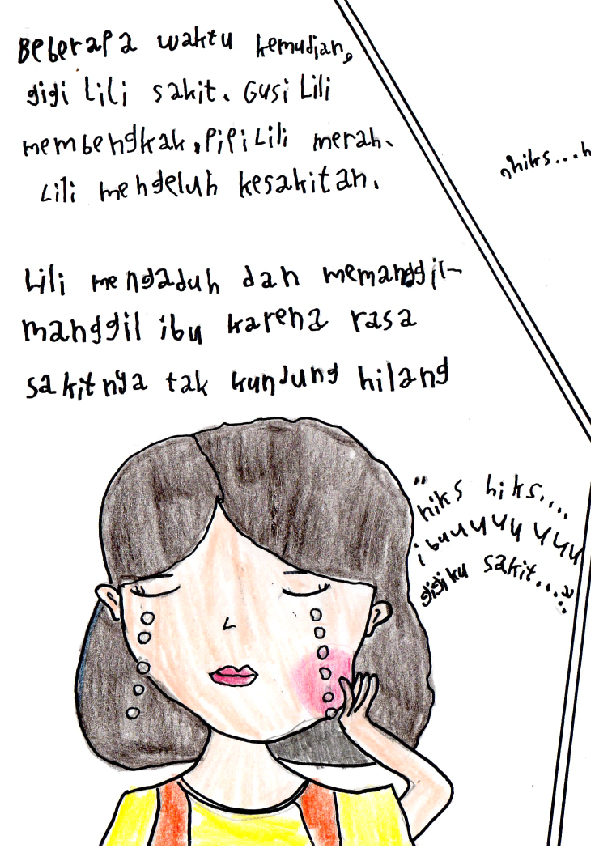 Beberapa waktu kemudian,
gigi Lili sakit. Gusi Lili
membengkak, Pipi Lili merah.
Lili mengeluh kesakitan.
Lili mengaduh dan memanggil-
manggil ibu karena rasa
sakitnya tak kundung hilang
"hiks...h
"hiks hiks....
ibuuuuuu uuu
gigiku sakit....."